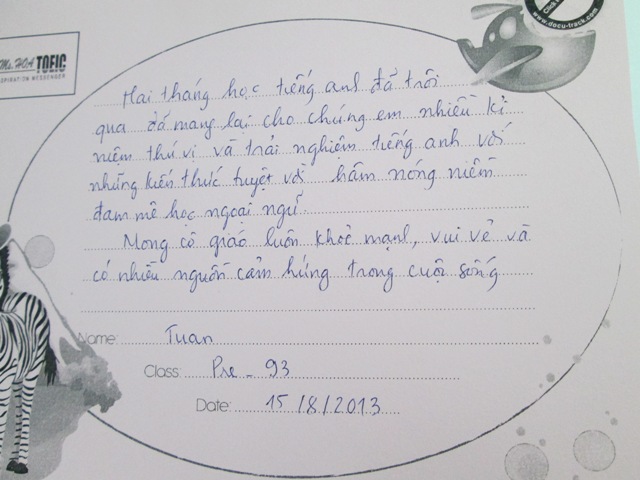 Click
www.docu-track.com
Ms. HOA TOEIC
INSPIRATION MESSENGER
Hai tháng học tiếng anh đã trôi
qua đã mang lại cho chúng em nhiều kỉ
niệm thú vị và trải nghiệm tiếng anh với
những kiến thức tuyệt vời hâm nóng niềm
đam mê học ngoại ngữ.
Mong cô giáo luôn khoẻ mạnh, vui vẻ và
có nhiều nguồn cảm hứng trong cuộc sống
Name: Tuan
Class: Pre - 93
Date: 15/8/2013